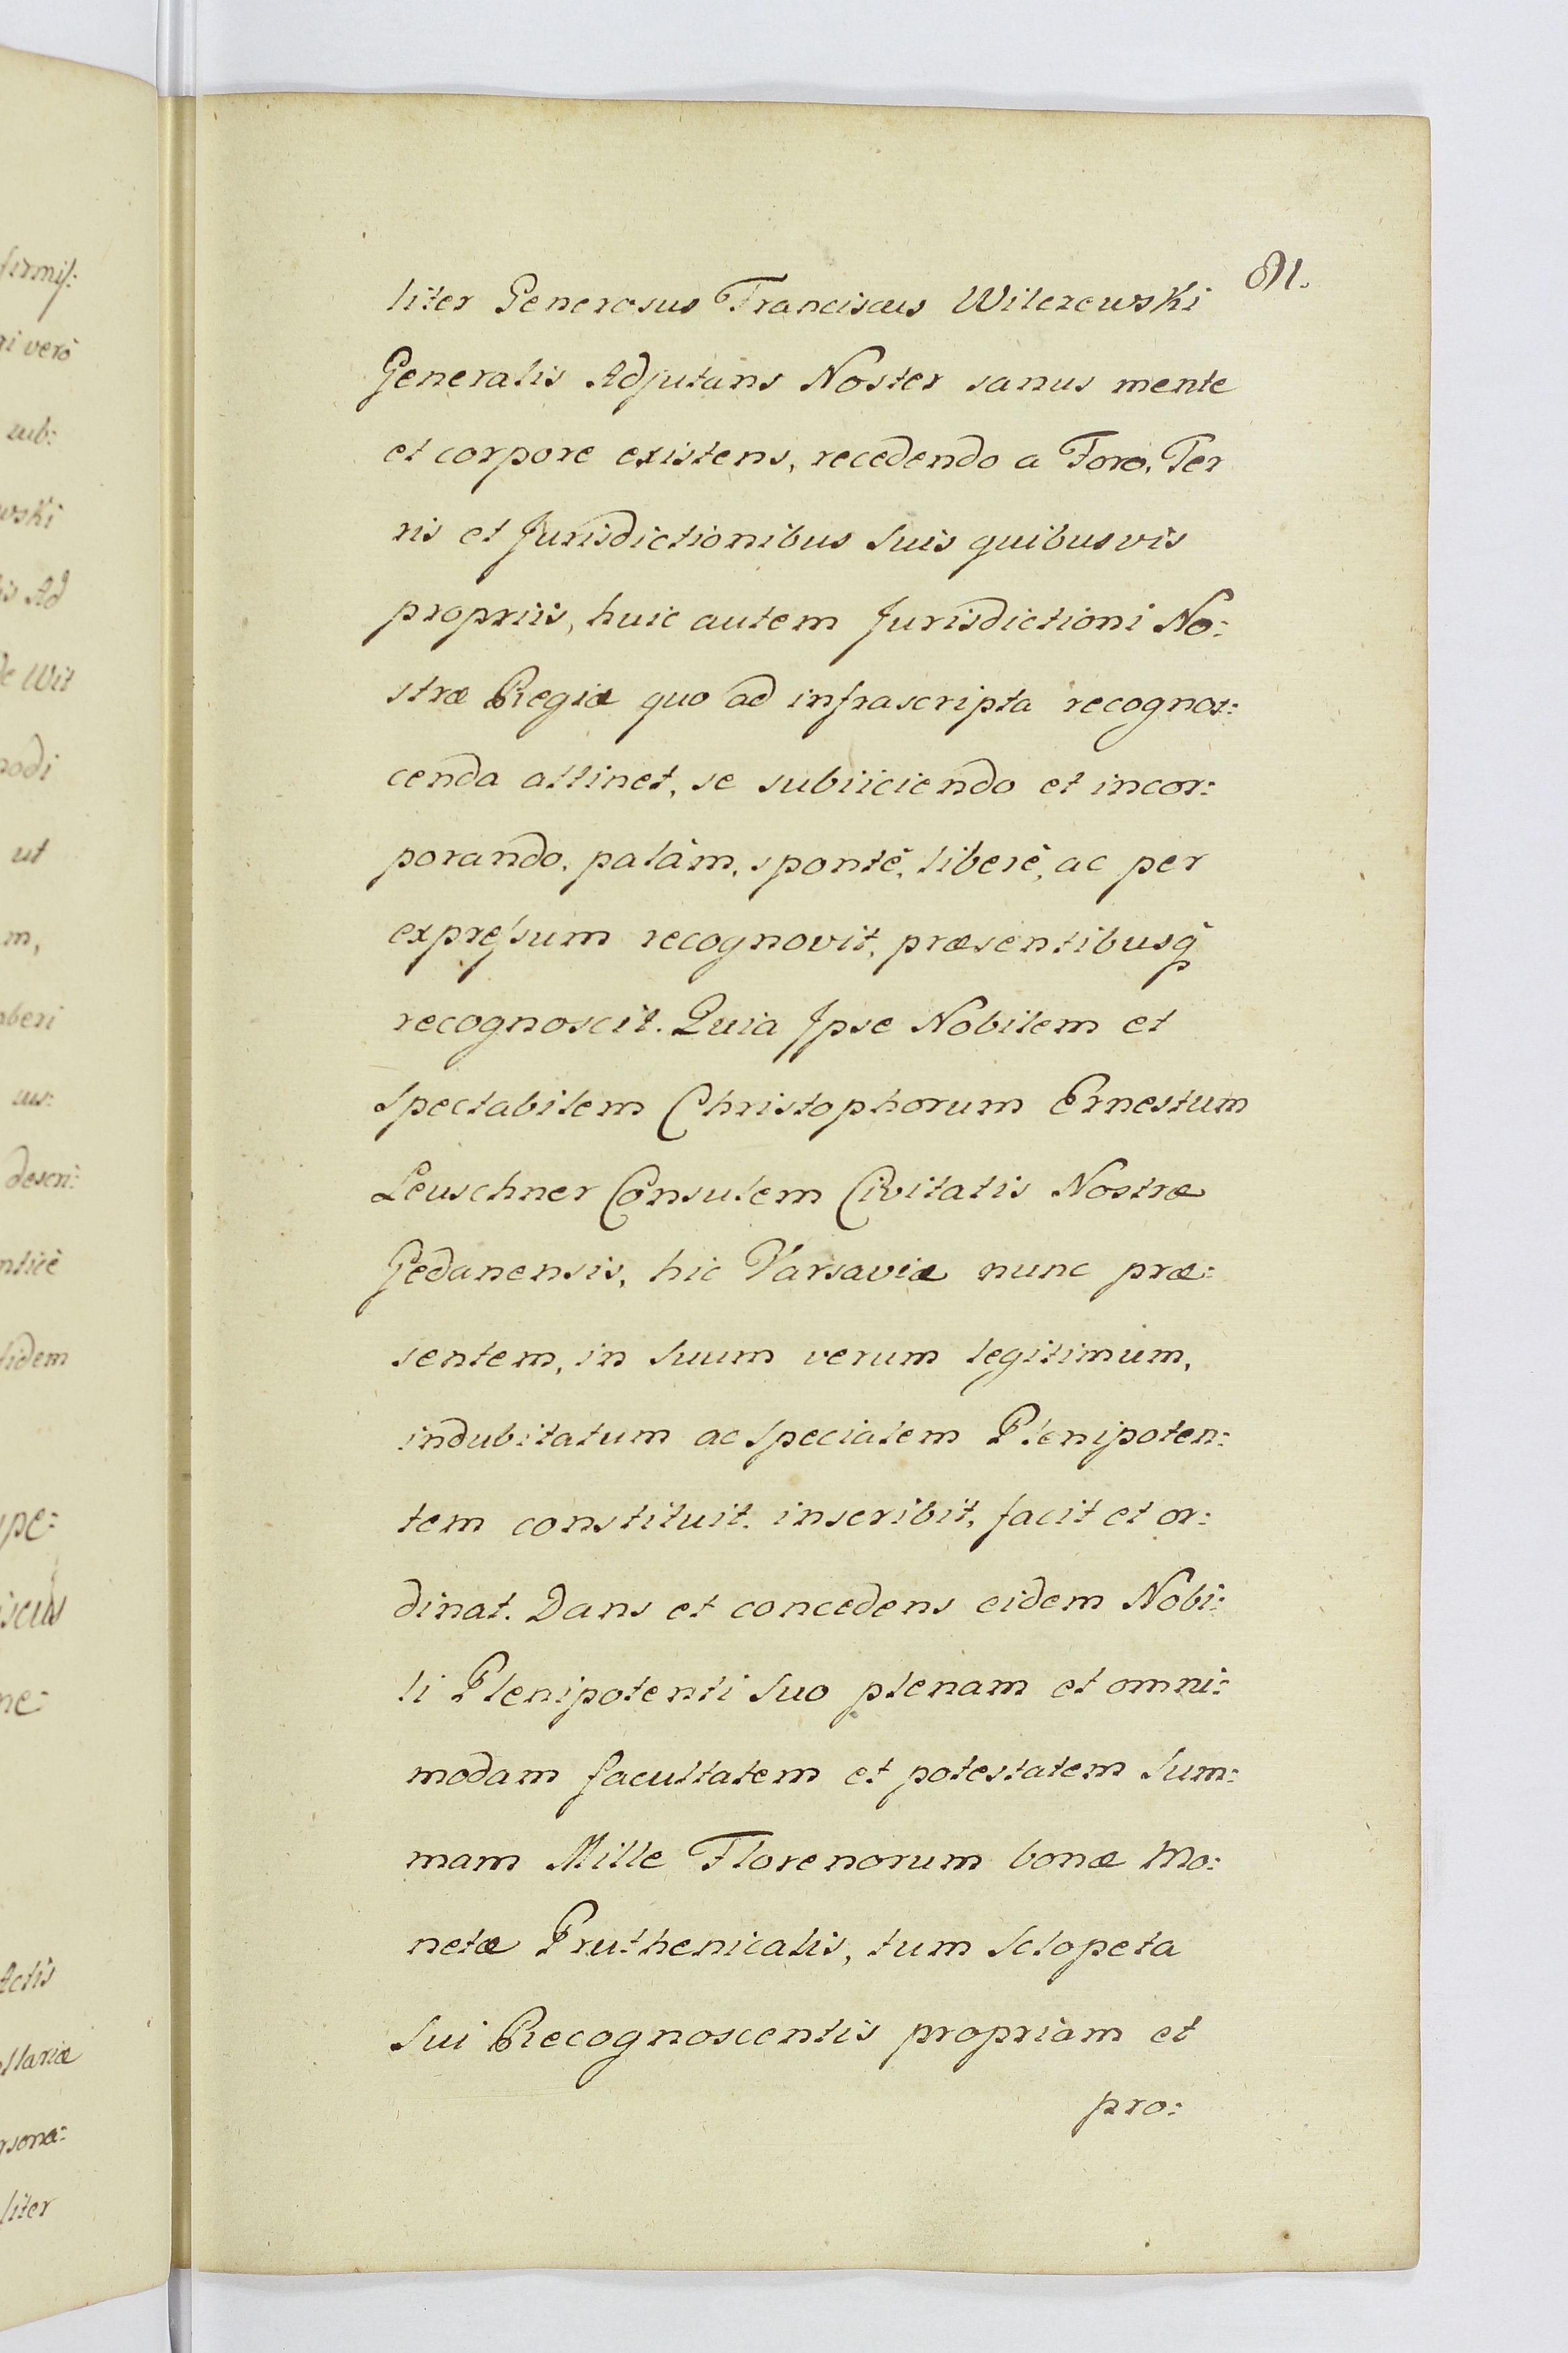 81.
liter Generosus Franciscus Wilczewski
Generalis Adjutans Noster sanus mente
et corpore existens, recedendo a Foro, Ter
ris et Jurisdictionibus suis quibusvis
propriis, huic autem Jurisdictioni No:
stræ Regiæ quo ad infrascripta recognos:
cenda attinet, se subiiciendo et incor:
porando, palàm, spontè, liberè, ac per
expressum recognovit, præsentibusq̃
recognoscit. Quia Ipse Nobilem et
Spectabilem Christophorum Ernestum
Leuschner Consulem Civitatis Nostræ
Gedanensis, hic Varsaviæ nunc præ:
sentem, in suum verum legitimum,
indubitatum ac specialem Plenipoten:
tem constituit, inscribit, facit et or:
dinat. Dans et concedens eidem Nobi:
li Plenipotenti suo plenam et omni:
modam facultatem et potestatem Sum:
mam Mille Florenorum bonæ Mo:
netæ Pruthenicalis, tum Sclopeta
sui Recognoscentis propriam et
pro:
firmis:
ri verò
sub:
wski
is Ad
de Wil
modi
ut
m,
beri
us:
descri:
nticè
fidem
ype:
iscus
ne:
Actis
llariæ
rsona:
liter